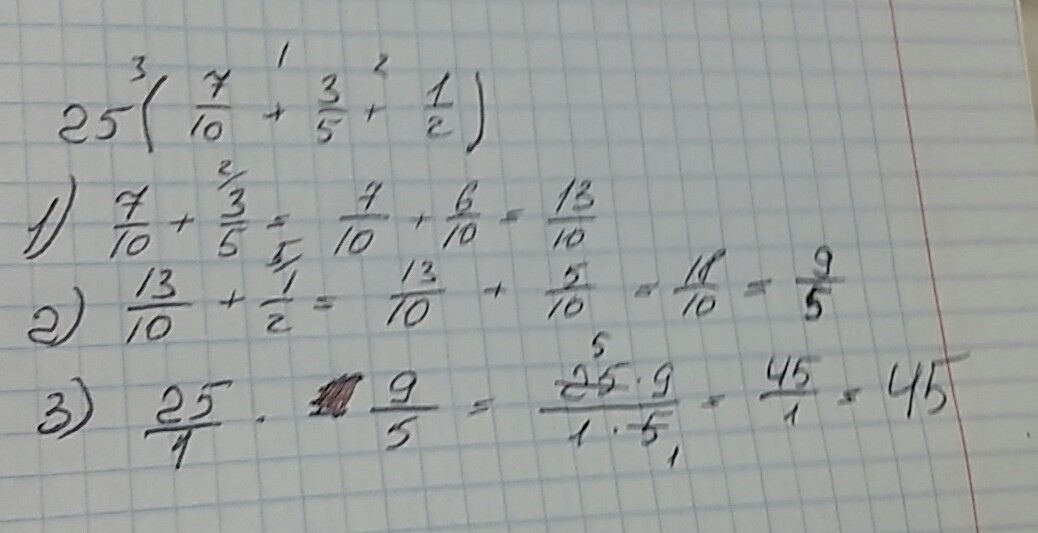 25(7/10 + 3/5 + 1/2)
1) 7/10 + 3/5 = 7/10 + 6/10 = 13/10
2) 13/10 + 1/2 = 13/10 + 5/10 = 18/10 = 9/5
3) 25/1 · 9/5 = 25·9/1·5 = 45/1 = 45